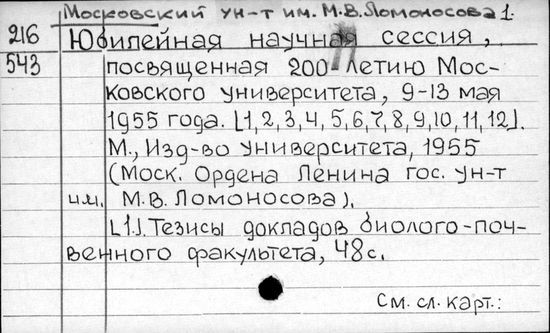 Московский ун-т им. М.В. Ломоносова 1.
216 Юбилейная научная сессия,
543 посвященная 200-летию Мос-
ковского университета, 9-13 мая
1955 года. [1,2,3,4,5,6,7,8,9,10,11,12].
М., Изд-во университета, 1955
(Моск. Ордена Ленина гос. ун-т
им. М.В. Ломоносова).
[1.]. Тезисы докладов биолого-поч-
венного факультета, 48 с.
См. сл. карт.: